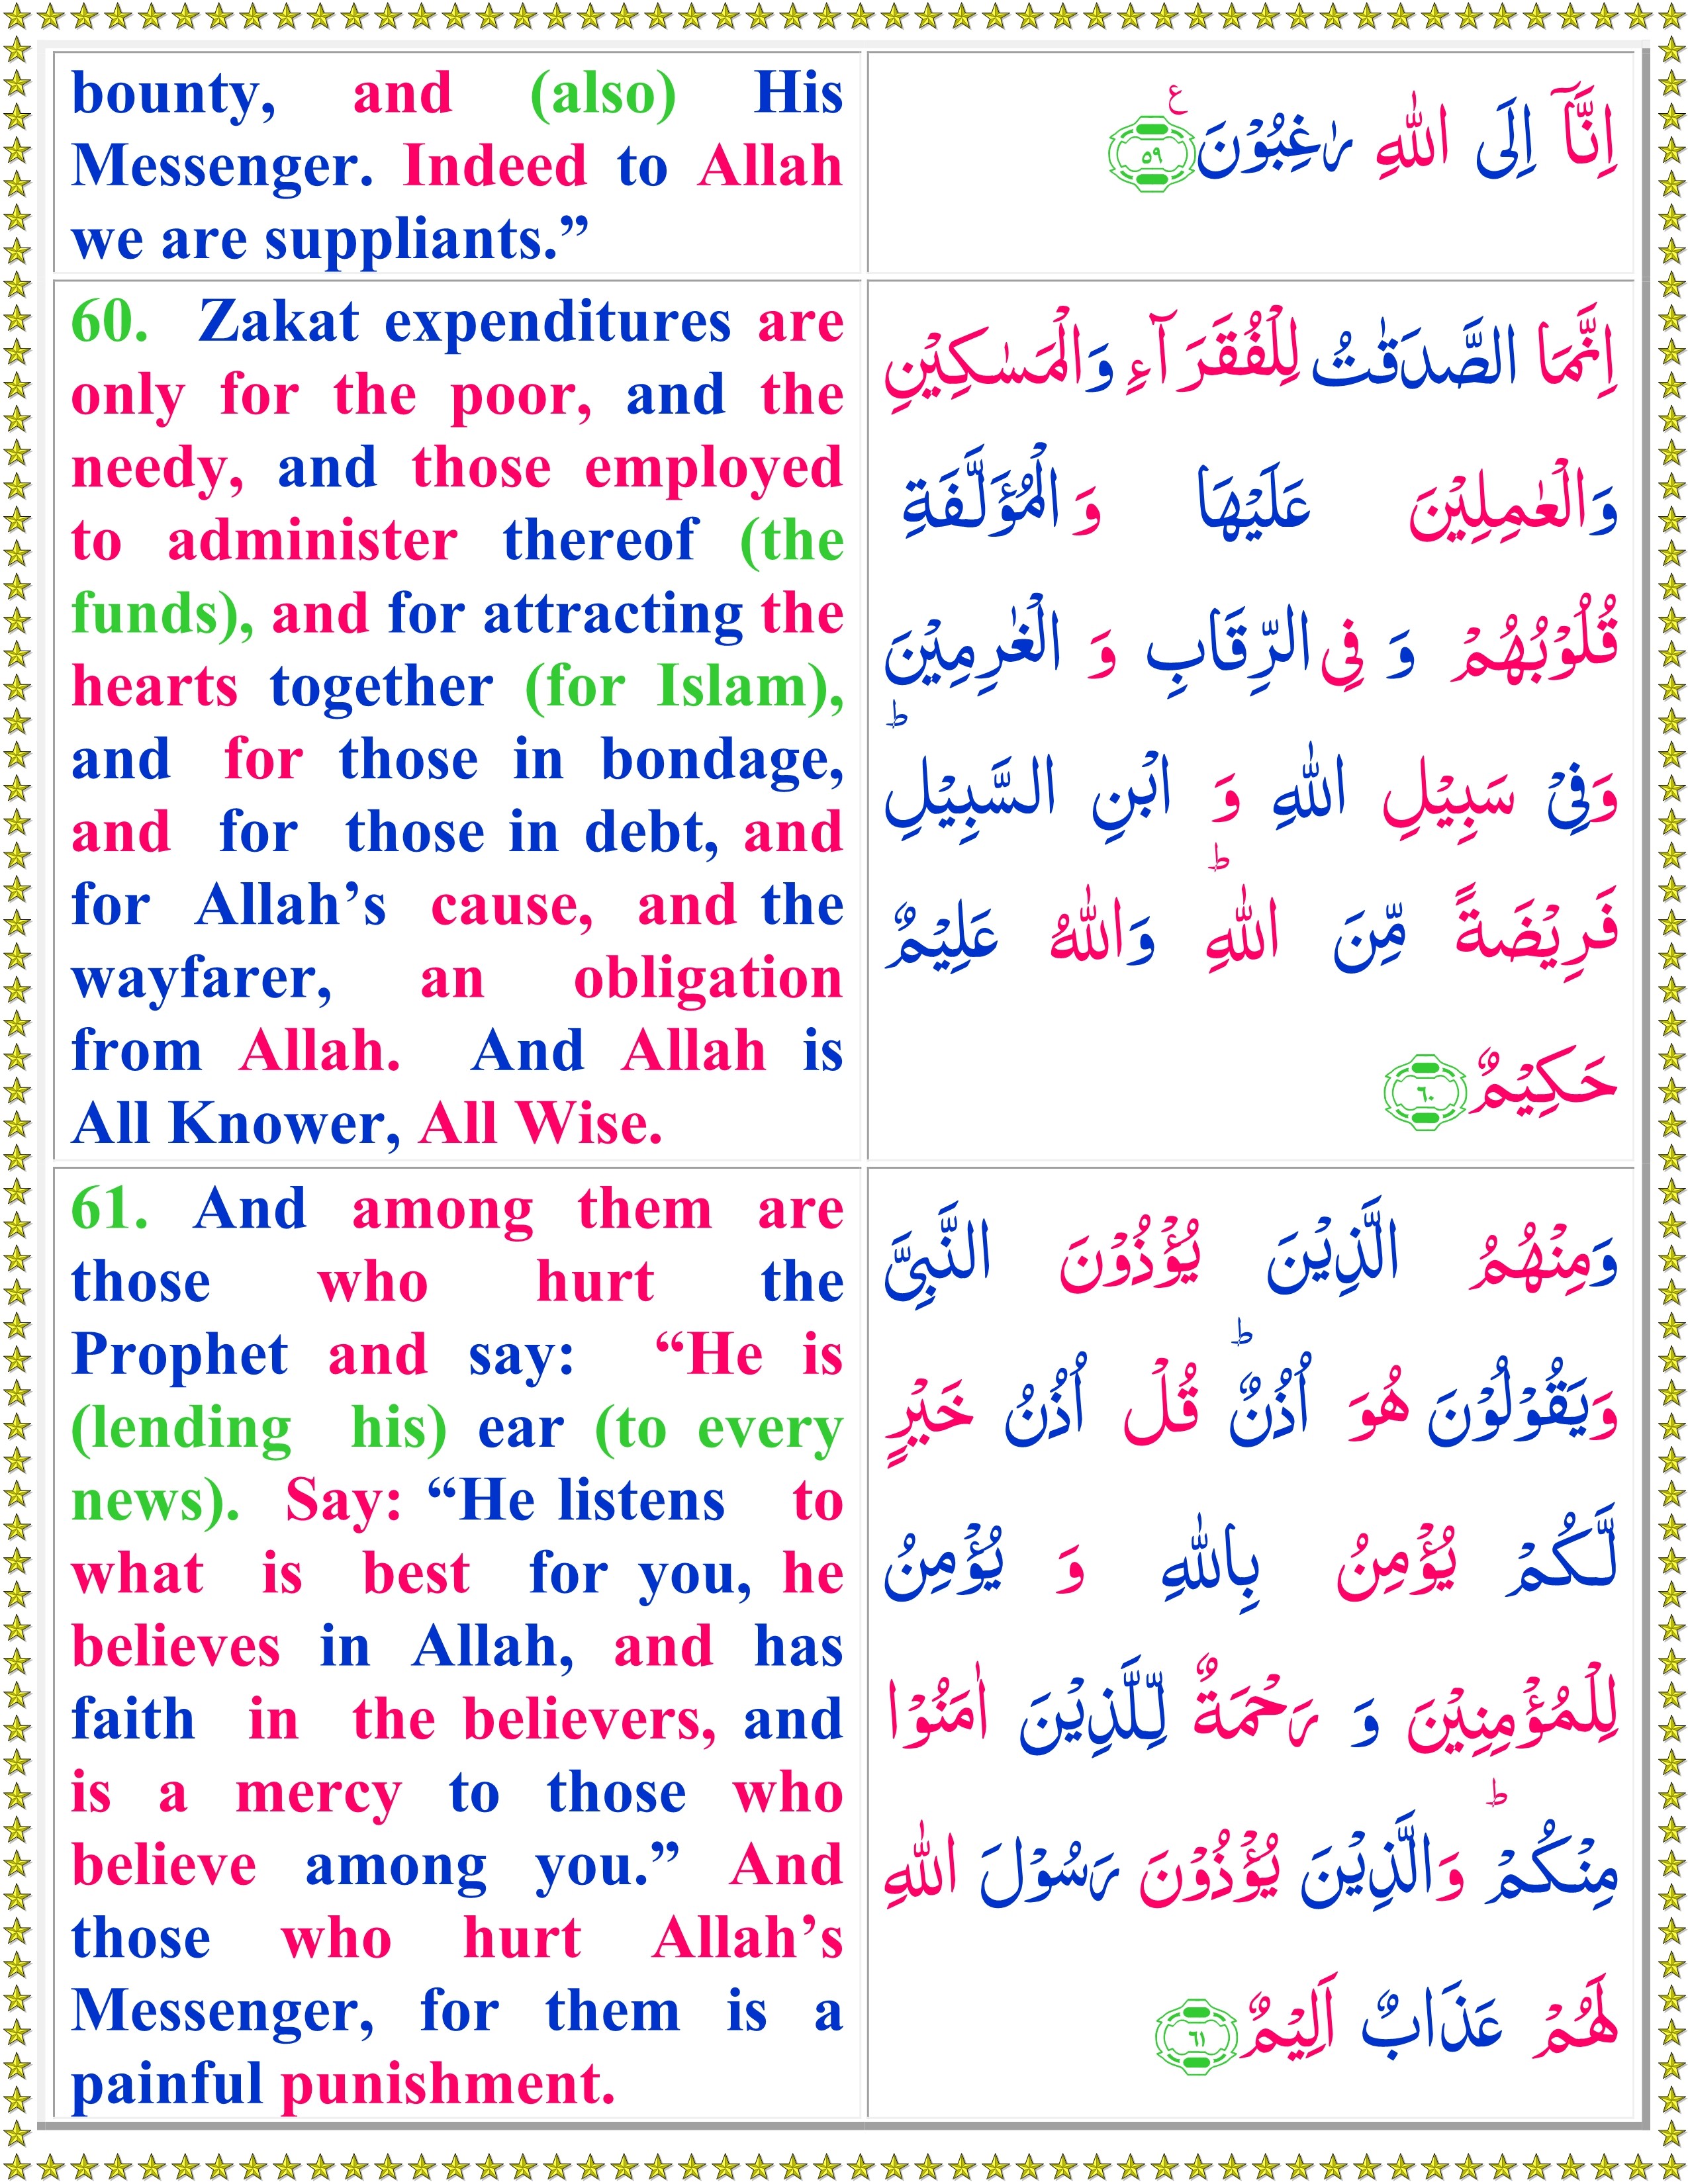 bounty, and (also) His
Messenger. Indeed to Allah
we are suppliants.”
اِنَّاۤ اِلَى اللّٰهِ رٰغِبُوْنَ ۧ‏﴿۵۹﴾
60. Zakat expenditures are
only for the poor, and the
needy, and those employed
to administer thereof (the
funds), and for attracting the
hearts together (for Islam),
and for those in bondage,
and for those in debt, and
for Allah’s cause, and the
wayfarer, an obligation
from Allah. And Allah is
All Knower, All Wise.
اِنَّمَا الصَّدَقٰتُ لِلْفُقَرَآءِ وَالْمَسٰكِيْنِ
وَالْعٰمِلِيْنَ عَلَيْهَا وَ الْمُؤَلَّفَةِ
قُلُوْبُهُمْ وَ فِى الرِّقَابِ وَ الْغٰرِمِيْنَ
وَفِىْ سَبِيْلِ اللّٰهِ وَ ابْنِ السَّبِيْلِؕ
فَرِيْضَةً مِّنَ اللّٰهِؕ وَاللّٰهُ عَلِيْمٌ
حَكِيْمٌ‏﴿۶۰﴾
61. And among them are
those who hurt the
Prophet and say: “He is
(lending his) ear (to every
news). Say: “He listens to
what is best for you, he
believes in Allah, and has
faith in the believers, and
is a mercy to those who
believe among you.” And
those who hurt Allah’s
Messenger, for them is a
painful punishment.
وَمِنْهُمُ الَّذِيْنَ يُؤْذُوْنَ النَّبِىَّ
وَيَقُوْلُوْنَ هُوَ اُذُنٌؕ قُلْ اُذُنُ خَيْرٍ
لَّـكُمْ يُؤْمِنُ بِاللّٰهِ وَ يُؤْمِنُ
لِلْمُؤْمِنِيْنَ وَ رَحْمَةٌ لِّـلَّذِيْنَ اٰمَنُوْا
مِنْكُمْؕ وَالَّذِيْنَ يُؤْذُوْنَ رَسُوْلَ اللّٰهِ
لَهُمْ عَذَابٌ اَلِيْمٌ‏﴿۶۱﴾